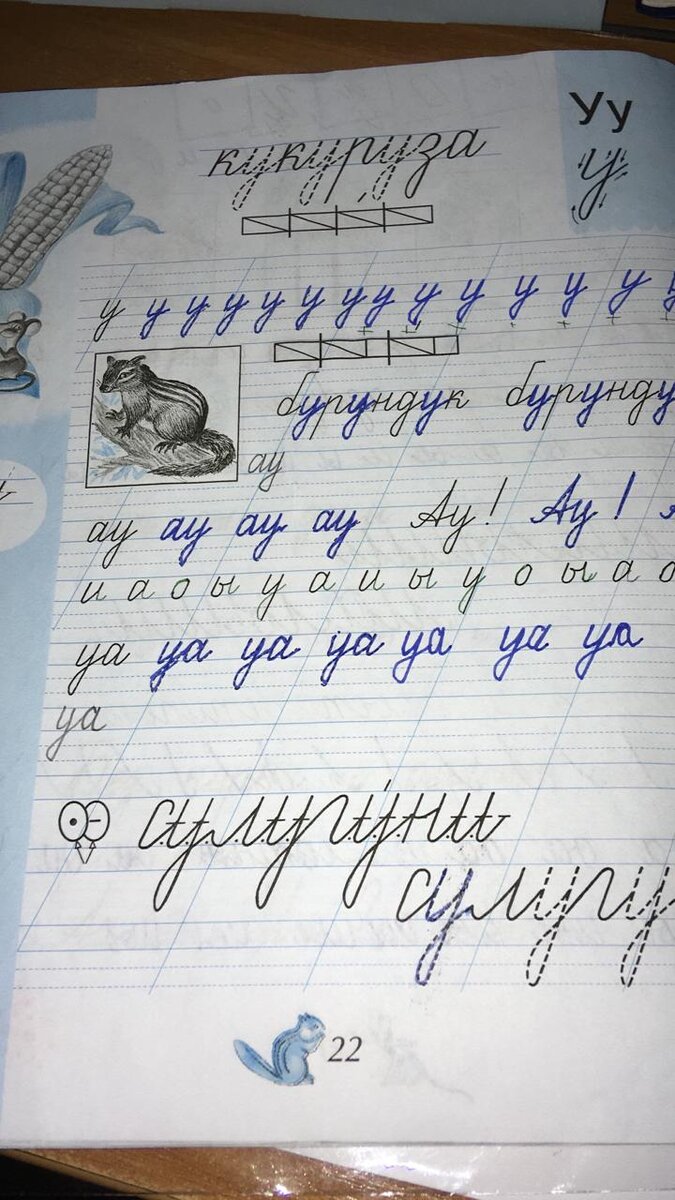 Уу
кукуруза
у
у у у у у у у у у у у у у
бурундук бурунду
ау
ау ау ау ау Ау! Ау!
и а о ы у а и ы у о ы а о
уа уа уа уа уа уа уа
уа
сулугуни
сулугу
22